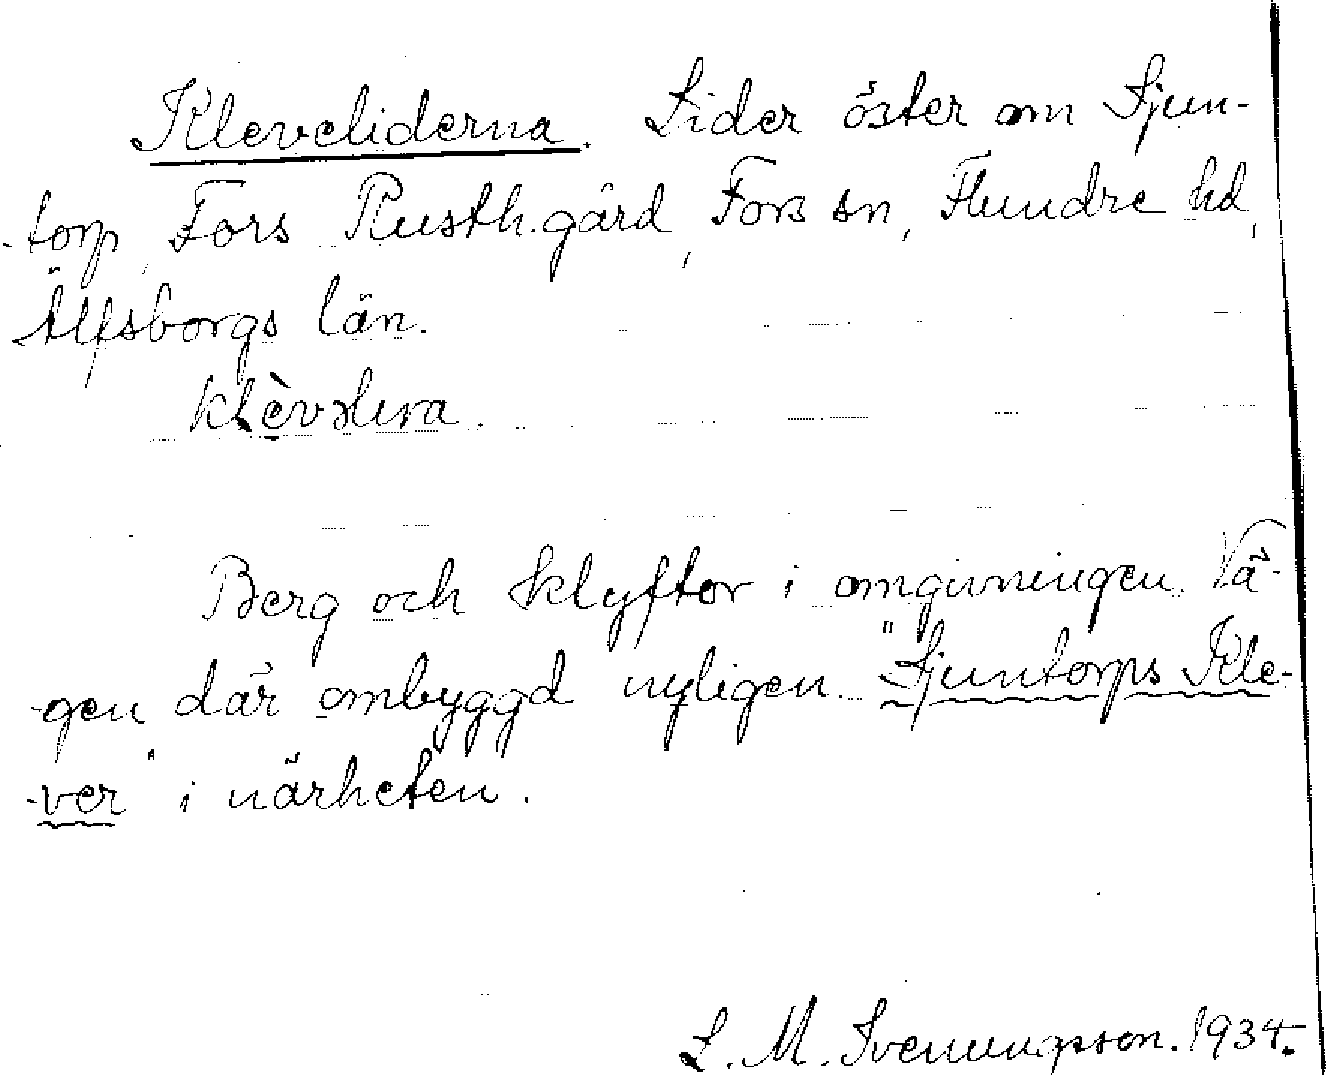 Kleveliderna. Lider öster om Sjun-
-torp, Fors Rusth.gård, Fors sn, Flundre hd,
Älfsborgs län.
klèvəlira.
Berg och klyftor i omgivningen. Vä-
-gen där ombyggd nyligen. "Sjuntorps Kle-
-ver" i närheten.
L. M. Svenungsson. 1934.